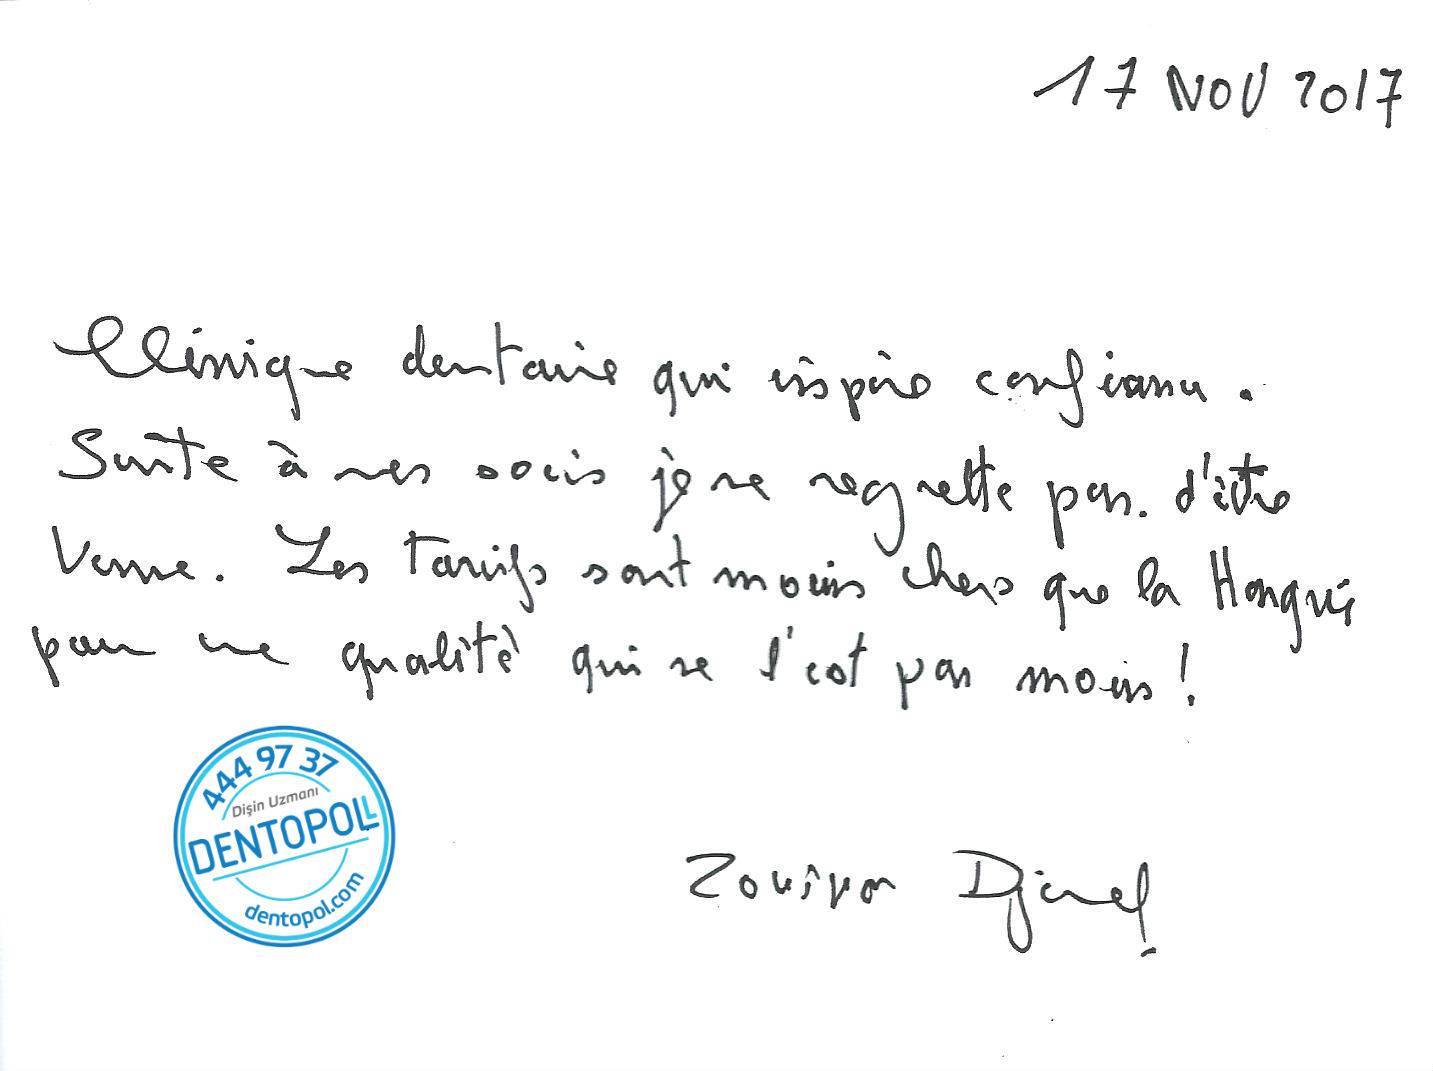 17 NOV 2017
Clinique dentaire qui inspire confiance.
Suite à mes soins je ne regrette pas. d'être
venue. Les tarifs sont moins chers que la Hongrie
pour une qualité qui ne l'est pas moins !
444 97 37
Dişin Uzmanı
DENTOPOLL
dentopol.com